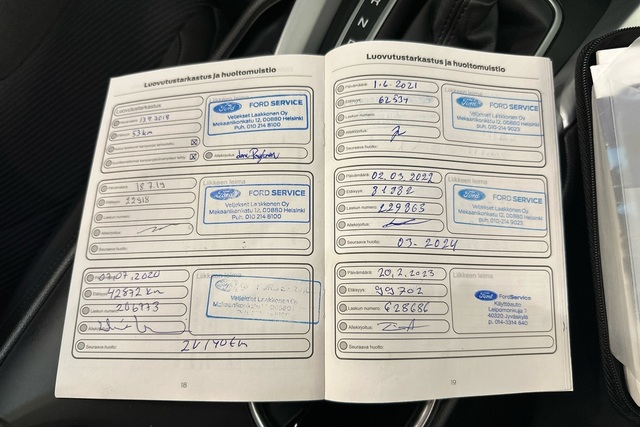 Luovutustarkastus ja huoltomuistio
Luovutustarkastus
53 km
Allekirjoitus:
Liikkeen leima
Ford FORD SERVICE
Veljekset Laakkonen Oy
Mekaanikonkatu 12, 00880 Helsinki
Puh. 010 214 8100
Päivämäärä: 18.7.19
Laskun numero:
Allekirjoitus:
Seuraava huolto:
Liikkeen leima
Ford FORD SERVICE
Veljekset Laakkonen Oy
Mekaanikonkatu 12, 00880 Helsinki
Puh. 010 214 8100
07.07.2020
42872 km
Laskun numero: 206773
Seuraava huolto: 2V/40tkm
Liikkeen leima
18
Luovutustarkastus ja huoltomuistio
Päivämäärä: 1.6.2021
Etäisyys: 62534
Laskun numero:
Allekirjoitus:
Seuraava huolto:
Ford FORD SERVICE
Veljekset Laakkonen Oy
Mekaanikonkatu 12, 00880 Helsinki
puh. 010-214 9023
Päivämäärä: 02.03.2022
Etäisyys: 81982
Laskun numero: 129863
Allekirjoitus:
Seuraava huolto: 03.2024
Liikkeen leima
Ford FORD SERVICE
Veljekset Laakkonen Oy
Mekaanikonkatu 12, 00880 Helsinki
puh. 010-214 9023
Päivämäärä: 20.2.2023
Etäisyys: 99702
Laskun numero: 628686
Allekirjoitus:
Seuraava huolto:
Liikkeen leima
Ford FordService
Käyttöauto
40320 Jyväskylä
p. 014-3314 640
19